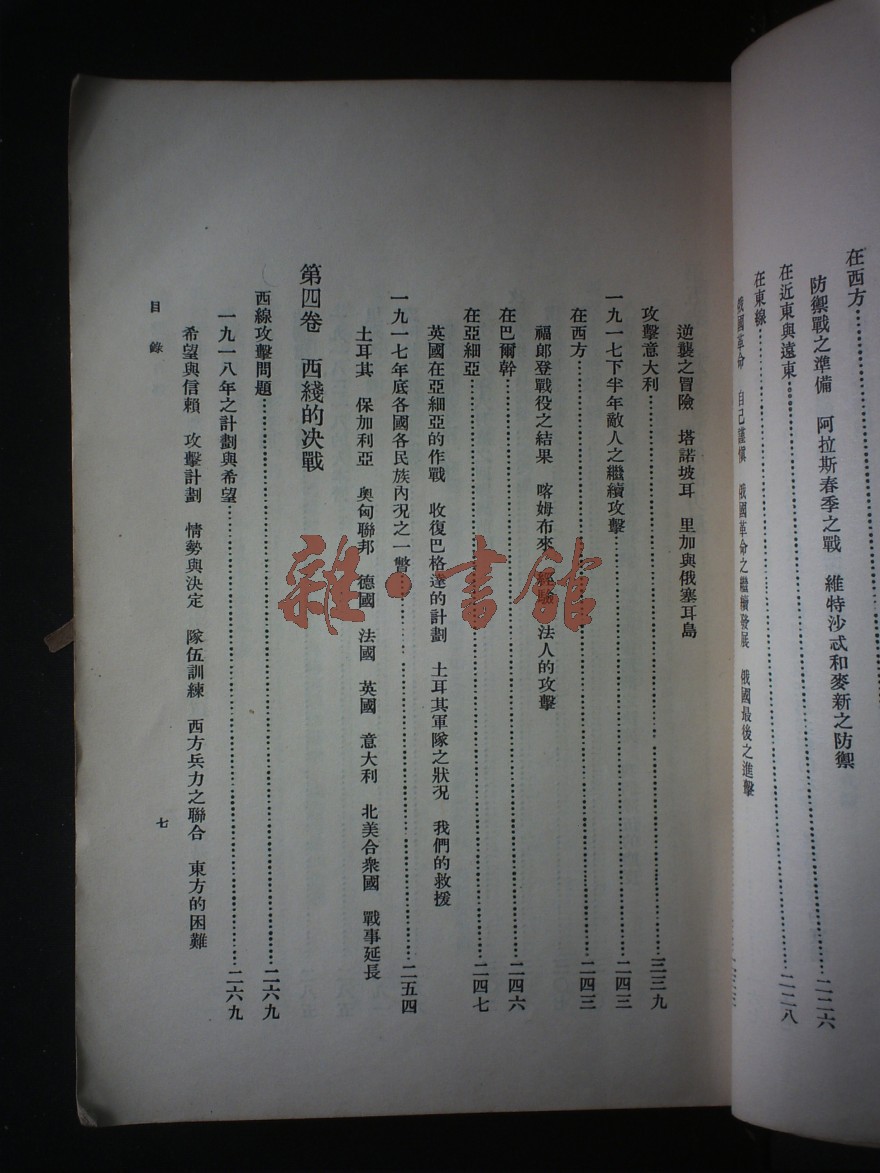 在西方……二二六
防禦戰之準備　阿拉斯春季之戰　維特沙忒和麥新之防禦
在近東與遠東……二二八
在東線……
俄國革命　自己謹慎　俄國革命之繼續發展　俄國最後之進擊
逆襲之冒險　塔諾坡耳　里加與俄塞耳島
攻擊意大利……二三九
一九一七下半年敵人之繼續攻擊……二四三
在西方……二四三
福郎登戰役之結果　喀姆布來　經驗　法人的攻擊
在巴爾幹……二四六
在亞細亞……二四七
英國在亞細亞的作戰　收復巴格達的計劃　土耳其軍隊之狀况　我們的救援
一九一七年底各國各民族內况之一瞥……二五四
土耳其　保加利亞　奧匈聯邦　德國　法國　英國　意大利　北美合衆國　戰事延長
第四卷　西綫的決戰
西線攻擊問題……二六九
一九一八年之計劃與希望……二六九
希望與信賴　攻擊計劃　情勢與決定　隊伍訓練　西方兵力之聯合　東方的困難
目錄
七
雜·書館